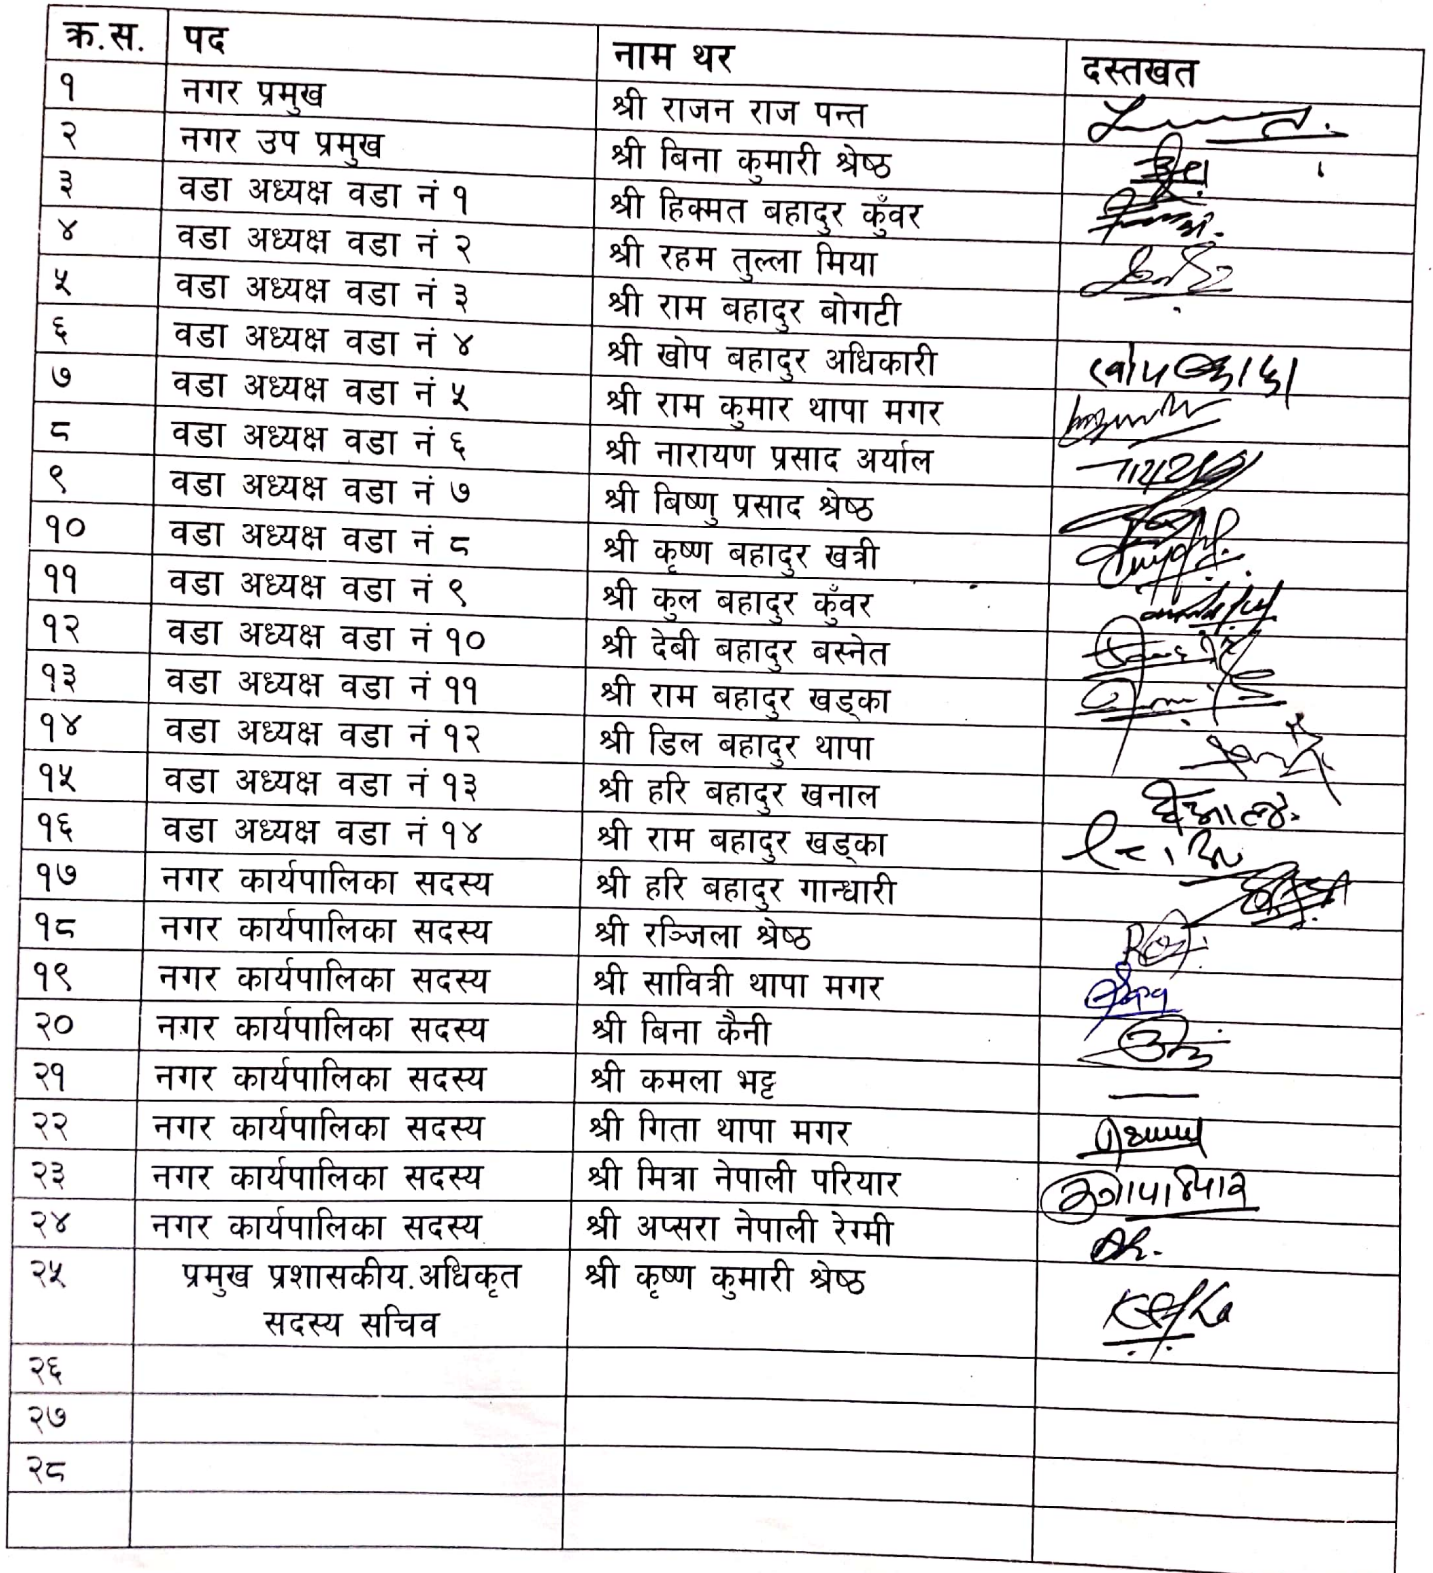 क्र.स. पद नाम थर दस्तखत
१ नगर प्रमुख श्री राजन राज पन्त
२ नगर उप प्रमुख श्री बिना कुमारी श्रेष्ठ
३ वडा अध्यक्ष वडा नं १ श्री हिक्मत बहादुर कुँवर
४ वडा अध्यक्ष वडा नं २ श्री रहम तुल्ला मिया
५ वडा अध्यक्ष वडा नं ३ श्री राम बहादुर बोगटी
६ वडा अध्यक्ष वडा नं ४ श्री खोप बहादुर अधिकारी
७ वडा अध्यक्ष वडा नं ५ श्री राम कुमार थापा मगर
८ वडा अध्यक्ष वडा नं ६ श्री नारायण प्रसाद अर्याल
९ वडा अध्यक्ष वडा नं ७ श्री बिष्णु प्रसाद श्रेष्ठ
१० वडा अध्यक्ष वडा नं ८ श्री कृष्ण बहादुर खत्री
११ वडा अध्यक्ष वडा नं ९ श्री कुल बहादुर कुँवर
१२ वडा अध्यक्ष वडा नं १० श्री देबी बहादुर बस्नेत
१३ वडा अध्यक्ष वडा नं ११ श्री राम बहादुर खड्का
१४ वडा अध्यक्ष वडा नं १२ श्री डिल बहादुर थापा
१५ वडा अध्यक्ष वडा नं १३ श्री हरि बहादुर खनाल
१६ वडा अध्यक्ष वडा नं १४ श्री राम बहादुर खड्का
१७ नगर कार्यपालिका सदस्य श्री हरि बहादुर गान्धारी
१८ नगर कार्यपालिका सदस्य श्री रञ्जिला श्रेष्ठ
१९ नगर कार्यपालिका सदस्य श्री सावित्री थापा मगर
२० नगर कार्यपालिका सदस्य श्री बिना कैनी
२१ नगर कार्यपालिका सदस्य श्री कमला भट्ट
२२ नगर कार्यपालिका सदस्य श्री गिता थापा मगर
२३ नगर कार्यपालिका सदस्य श्री मित्रा नेपाली परियार
२४ नगर कार्यपालिका सदस्य श्री अप्सरा नेपाली रेग्मी
२५ प्रमुख प्रशासकीय.अधिकृत श्री कृष्ण कुमारी श्रेष्ठ
सदस्य सचिव
२६
२७
२८